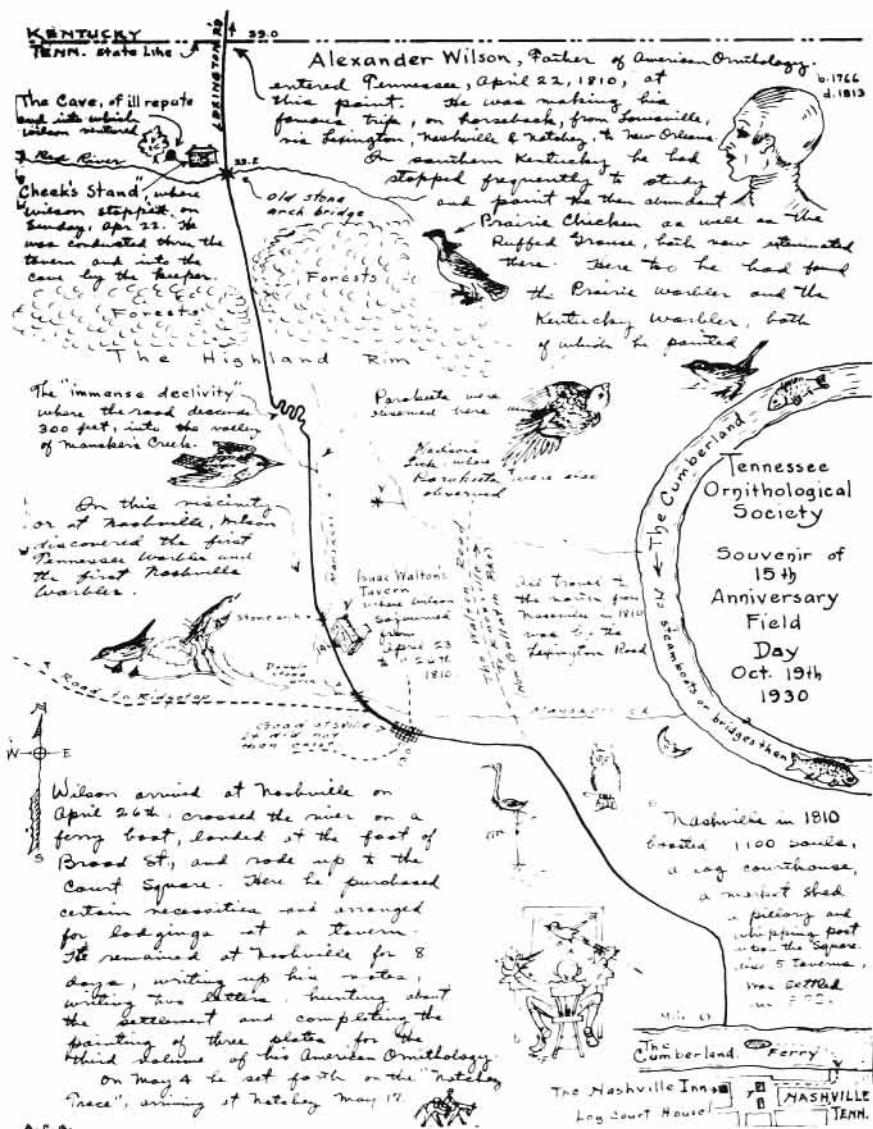 KENTUCKY
TENN. State Line
LEXINGTON RD
39.0
Alexander Wilson, Father of American Ornithology.
b. 1766
d. 1813
entered Tennessee, April 22, 1810, at
this point. He was making his
famous trip, on horseback, from Louisville,
via Lexington, Nashville & Natchez, to New Orleans.
In southern Kentucky he had
stopped frequently to study
and paint the then abundant
Prairie Chicken as well as the
Ruffed Grouse, both now exterminated
there. Here too he had found
the Prairie Warbler and the
Kentucky Warbler, both
of which he painted
The Cave, of ill repute
and into which
Wilson ventured
Red River
39.2
Old stone
arch bridge
"Cheek's Stand", where
Wilson stopped, on
Sunday, Apr 22. He
was conducted thru the
tavern and into the
cave by the keeper.
Forests
Forests
The Highland Rim
The "immense declivity"
where the road descends
300 feet, into the valley
of Mansker's Creek.
Parakeets were
observed here
Lick, where
Parakeets were also
observed
In this viscinity
or at Nashville, Wilson
discovered the first
Tennessee Warbler and
the first Nashville
Warbler.
Mansker's
Isaac Walton's
Tavern
where Wilson
sojourned
from
April 23
to 26th
1810.
Stone arch
Double
stone
arch
Walton Road
The Knoxville
Now Gallatin Pike
All travel to
the north from
Nashville in 1810
was by the
Lexington Road
The Cumberland
No steamboats or bridges then
Tennessee
Ornithological
Society
Souvenir of
15th
Anniversary
Field
Day
Oct. 19th
1930
Road to Ridgetop
Goodletsville
it did not
then exist
Mansker's Ck
W E
S
Wilson arrived at Nashville on
April 26th, crossed the river on a
ferry boat, landed at the foot of
Broad St., and rode up to the
Court Square. Here he purchased
certain necessities and arranged
for lodgings at a tavern.
He remained at Nashville for 8
days, writing up his notes,
writing two letters, hunting about
the settlement and completing the
painting of three plates for the
third volume of his American Ornithology.
On May 4 he set forth on the "Natchez
Trace", arriving at Natchez May 17.
Nashville in 1810
boasted 1100 souls,
a log courthouse,
a market shed
a pillory and
whipping post
upon the Square.
also 5 taverns,
was settled
Mile 0
The
Cumberland
Ferry
The Nashville Inn
Log Court House
NASHVILLE
TENN.